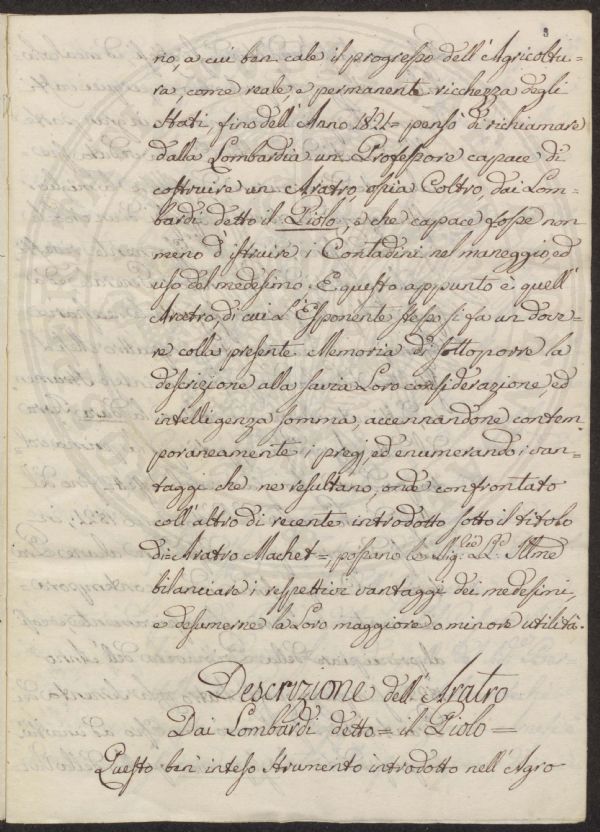 3
no, a cui ben cale il progresso dell'Agricoltu-
ra, come reale, e permanente ricchezza degli
Stati, fino dell'Anno 1821= pensò di richiamare
dalla Lombardia un Professore capace di
costruire un Aratro, ossia Coltro, dai Lom-
bardi detto il Piolo, e che capace fosse non
meno d'istruire i Contadini nel maneggio, ed
uso del medesimo. E questo appunto è quell'
Aratro, di cui l'Esponente stesso si fa un dove-
re colla presente Memoria di sottoporre la
descrizione alla savia Loro considerazione, ed
intelligenza somma, accennandone contem-
poraneamente i pregj, ed enumerando i van-
taggi che ne resultano, onde confrontato
coll'altro di recente introdotto sotto il titolo
di=Aratro Machet=, possano le Sig:rie L:L: Ill:me
bilanciare i respettivi vantaggi dei medesimi,
e desumerne la Loro maggiore o minore utilità.
Descrizione dell'Aratro
Dai Lombardi detto= il Piolo=
Questo ben'inteso strumento introdotto nell'Agro